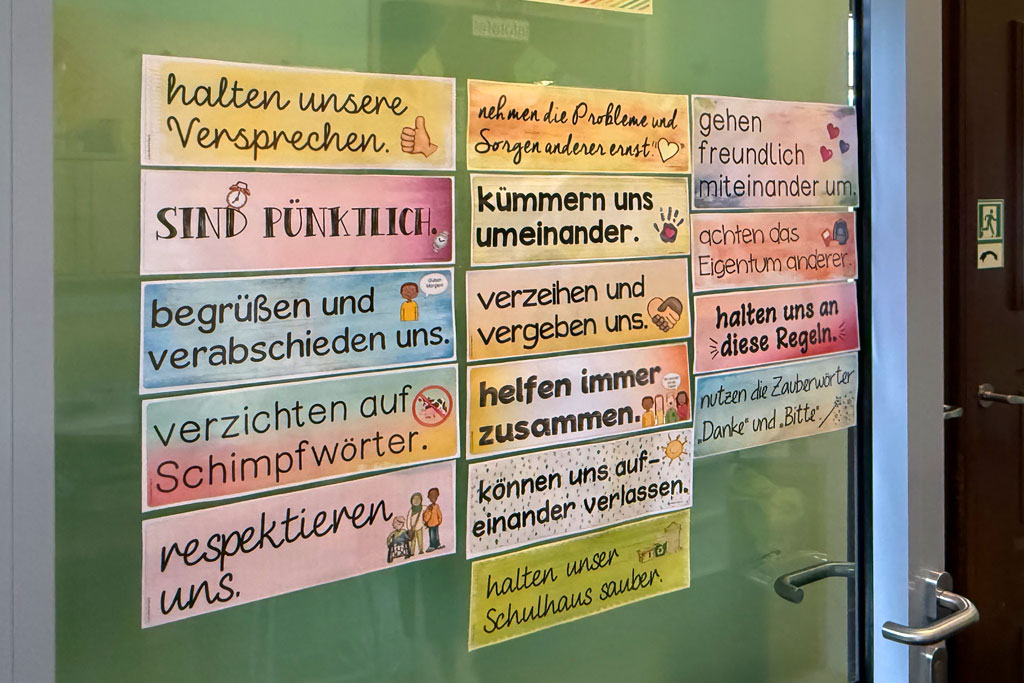 halten unsere
Versprechen.
SIND PÜNKTLICH.
begrüßen und
verabschieden uns.
Guten
Morgen!
verzichten auf
Schimpfwörter.
respektieren
uns.
nehmen die Probleme und
Sorgen anderer ernst.
kümmern uns
umeinander.
verzeihen und
vergeben uns.
helfen immer
zusammen.
können uns auf-
einander verlassen.
halten unser
Schulhaus sauber.
gehen
freundlich
miteinander um.
achten das
Eigentum anderer.
halten uns an
diese Regeln.
nutzen die Zauberwörter
„Danke“ und „Bitte“.